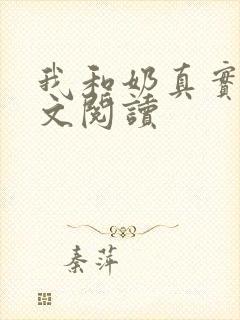 我和奶真實
文閱讀
秦萍